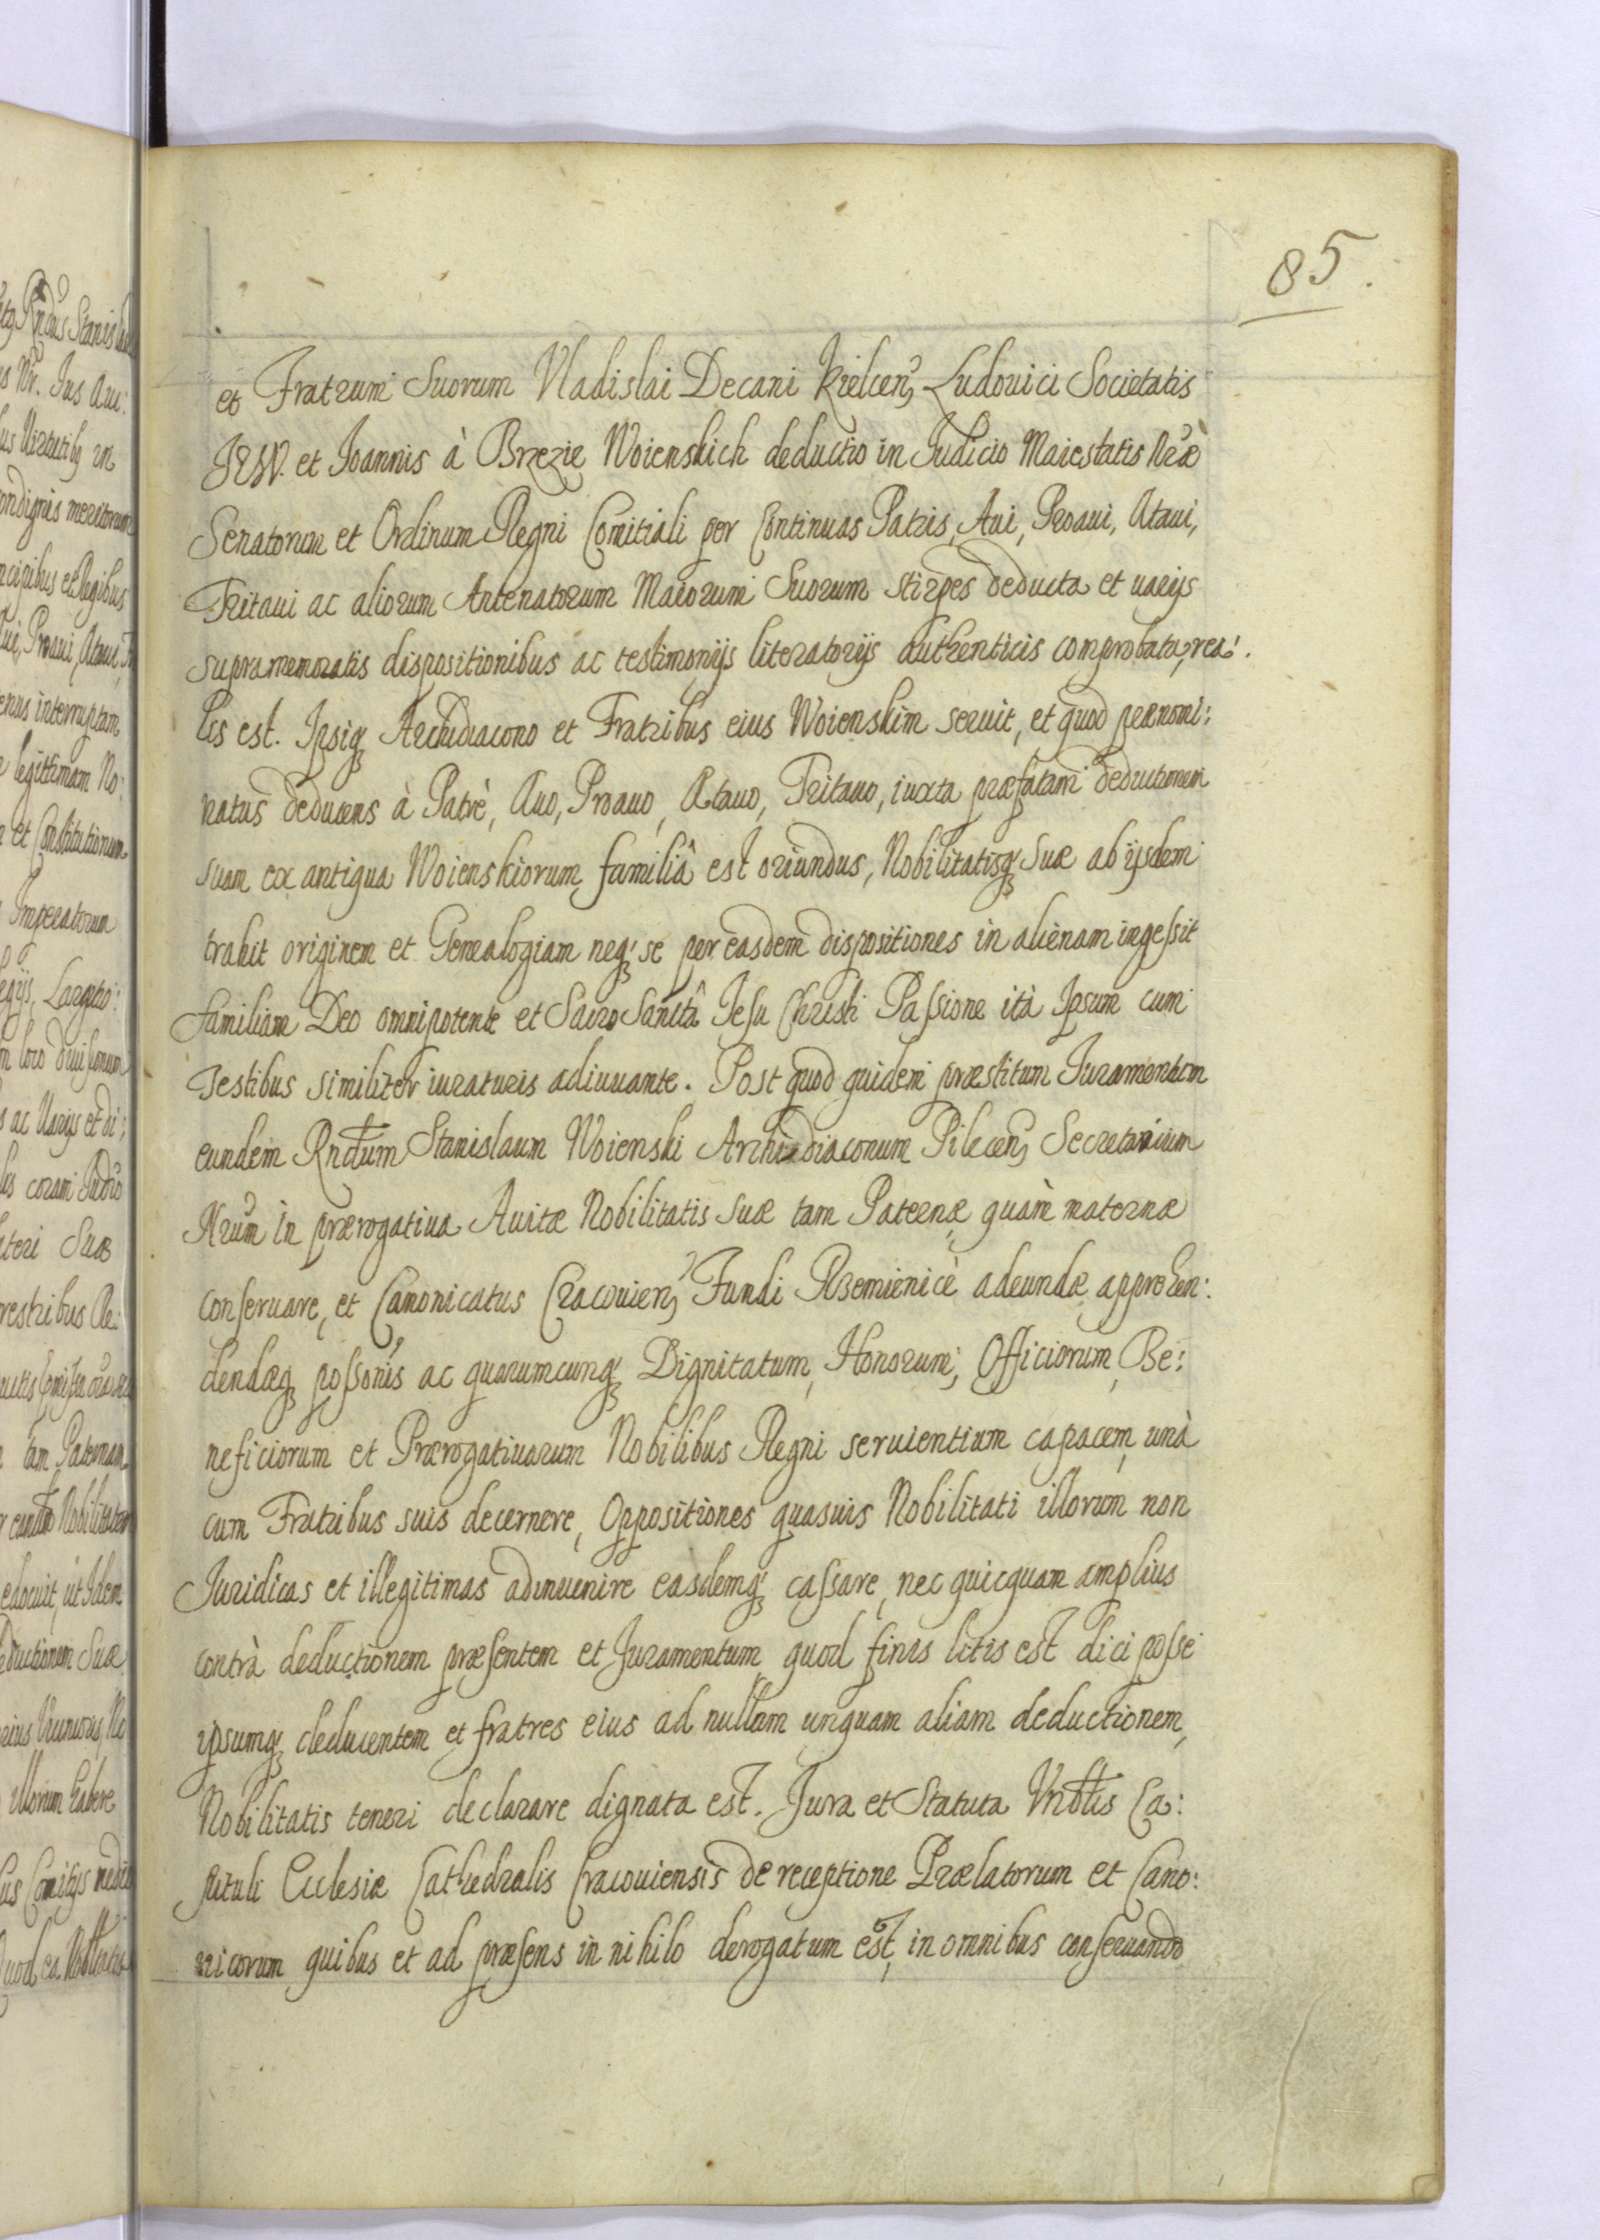 85.
et Fratrum Suorum Vladislai Decani Kielcen, Ludovici Societatis
JESV. et Joannis à Brzezie Woienskich deductio in Judicio Maiestatis Nræ
Senatorum et Ordinum Regni Comitiali per Continuas Patris, Aui, Proaui, Ataui,
Tritaui ac aliorum Antenatorum Maiorum Suorum stirpes deducta et uarijs
supramemoratis dispositionibus ac testimonijs literatorijs authenticis comprobata, rea:
lis est. Ipsiq Archidiacono et Fratribus eius Woienskim seruit, et quod prænomi:
natus deducens à Patrè, Auo, Proauo, Atauo, Tritauo, iuxta præfatam deductionem
suam ex antiqua Woienskiorum familiâ est oriundus, Nobilitatisq suæ ab ijsdem
trahit originem et Genealogiam neq se per easdem dispositiones in alienam ingessit
familiam Deo omnipotente et Sacro Sanctâ Jesu Christi Passione ità Ipsum cum
Testibus similiter iuraturis adiuuante. Post quod quidem præstitum Juramentum
eundem Rndum Stanislaum Woienski Archidiaconum Pilecen, Secretarium
Nrum in prærogatiua Auitæ Nobilitatis suæ tam Paternæ quàm maternæ
conseruare, et Canonicatus Cracouien, Fundi Rzemienicè adeundæ apprehen:
dendæq possonis ac quorumcunq Dignitatum, Honorum, Officiorum, Be:
neficiorum et Prærogatiuarum Nobilibus Regni seruientium capacem, unà
cum Fratribus suis decernere, Oppositiones quasuis Nobilitati illorum non
Juridicas et illegitimas adinuenire easdemq cassare, nec quicquam amplius
contrà deductionem præsentem et Juramentum, quod finis litis est dici posse
ipsumq deducentem et fratres eius ad nullam unquam aliam deductionem,
Nobilitatis teneri declarare dignata est. Jura et Statuta Vnbtis Ca:
pituli Ecclesiæ Cathedralis Cracouiensis de receptione Prælatorum et Cano:
nicorum quibus et ad præsens in nihilo derogatum est, in omnibus conseruando